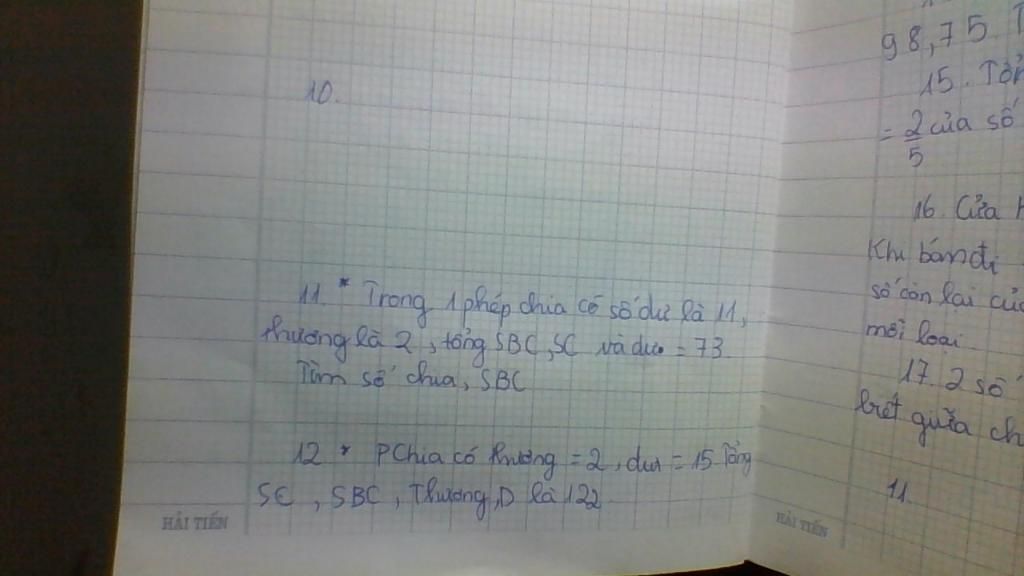 10.
11. * Trong 1 phép chia có số dư là 11,
thương là 2, tổng SBC, SC và dư = 73.
Tìm số chia, SBC
12 * P Chia có thương = 2, dư = 15. Tổng
SC, SBC, Thương, D là 122
HẢI TIẾN
98,75. T
15. Tổn
= 2/5 của số
16. Cửa h
Khi bán đi
số còn lại của
mỗi loại.
17. 2 số
biết giữa ch
11.
HẢI TIẾN